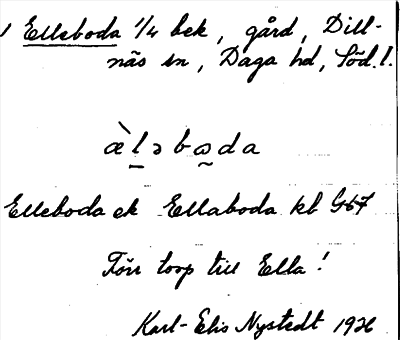 Elleboda 1/4 bek, gård, Dill-
näs sn, Daga hd, Söd. l.
æ̀l̠əbωda
Elleboda ek Ellaboda kb G 67
Förr torp till Ella!
Karl-Elis Nystedt 1926